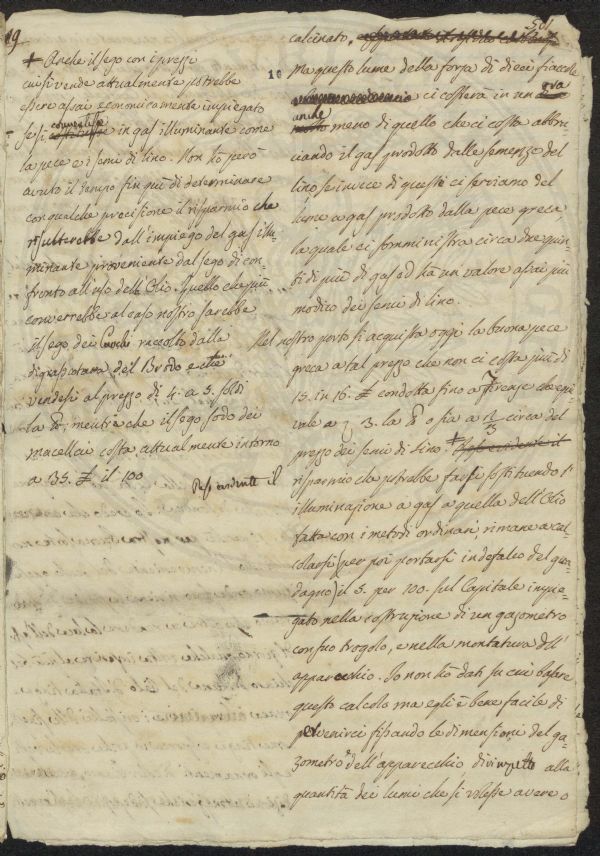 19
+ Anche il sego con i prezzi
cui si vende attualmente potrebbe
essere assai economicamente impiegato
se si convertisse in gas illuminante come
la pece e i semi di lino. Non ho però
avuto il tempo fin quì di determinare
con qualche precisione il risparmio che
risulterebbe dall'impiego del gas illu-
minante proveniente dal sego di con-
fronto all'uso dell'Olio. Quello che più
converrebbe al caso nostro sarebbe
il sego dei Cuochi raccolto dalla
digrassatura del Brodo e che
vendesi al prezzo di 4. a 5. soldi
la ℔; mentre che il sego sodo dei
macellai costa attualmente intorno
a 35. £ il 100
Reso evidente il
calcinato,
10
Ma questo lume della forza di dieci fiaccole
ci costerà in un ora
anche meno di quello che ci costa abbru-
ciando il gas prodotto dalle semenze del
lino se invece di queste ci serviamo del
lume a gas prodotto dalla pece greca,
la quale ci somministra circa due quin-
ti di più di gas ed ha un valore assai più
modico dei semi di lino.
Nel nostro porto si acquista oggi la buona pece
greca a tal prezzo che non ci costa più di
15. in 16. £ condotta fino a Firenze che equi-
vale a 3. la ℔ o sia a 1/3 circa del
prezzo dei semi di lino. +
risparmio che potrebbe farsi sostituendo l'
illuminazione a gas a quella dell'Olio
fatta con i metodi ordinari, rimane a cal-
colarsi (per poi portarsi in defalco del gua-
dagno) il 5. per 100. sul Capitale impie-
gato nella costruzione di un gasometro
con suo trogolo, e nella montatura dell'
apparecchio. Io non ho dati su cui basare
questo calcolo ma egli è bene facile di
pervenirci fissando le dimensioni del ga-
zometro e dell'apparecchio dirimpetto alla
quantità dei lumi che si volesse avere o